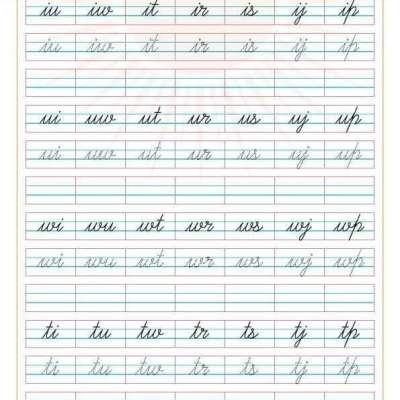 iu iw it ir is ij ip
iu iw it ir is ij ip
ui uw ut ur us uj up
ui uw ut ur us uj up
wi wu wt wr ws wj wp
wi wu wt wr ws wj wp
ti tu tw tr ts tj tp
ti tu tw tr ts tj tp